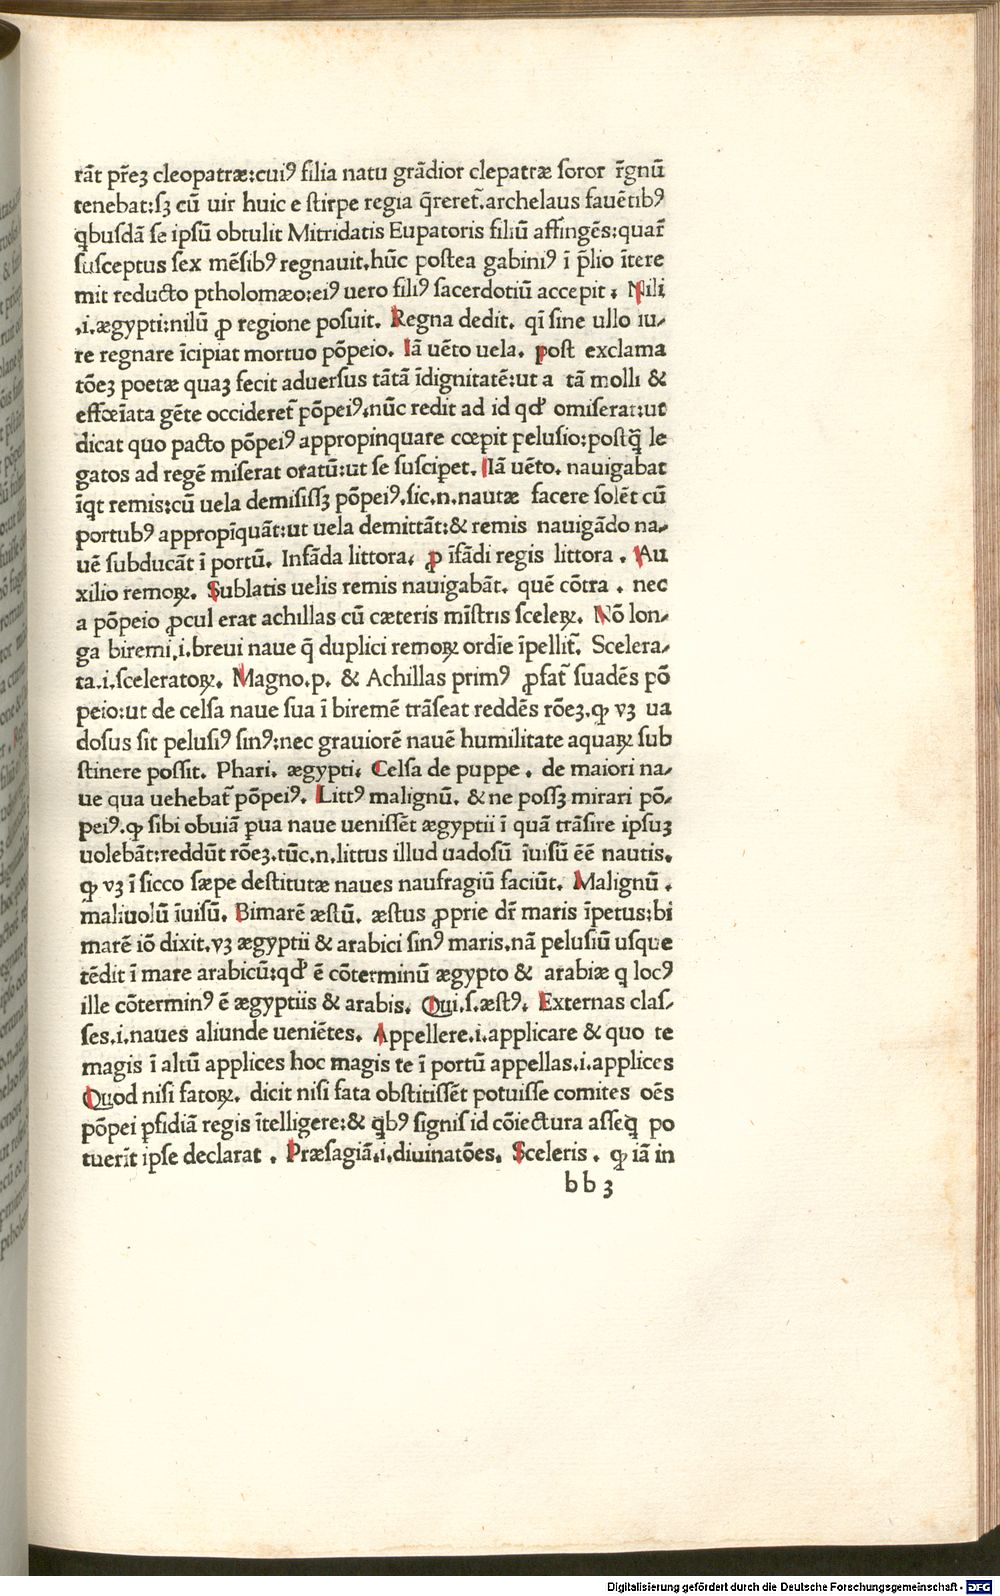 rãt pr̃eʒ cleopatræ:cuiꝰ filia natu grãdior clepatræ ſoror r̃gnũ
tenebat:ſʒ cũ uir huic e ſtirpe regia q̃reret᷑.archelaus fauẽtibꝰ
qbuſdã ſe ipſũ obtulit Mitridatis Eupatoris filiũ affingẽs:quar̃
ſuſceptus ſex mẽſibꝰ regnauit.hũc poſtea gabiniꝰ ĩ p̃lio ĩtere
mit reducto ptholomæo:eiꝰ uero filiꝰ ſacerdotiũ accepit . Nili
.i.ægypti:nilũ ꝓ regione poſuit. Regna dedit. qĩ ſine ullo iu-
re regnare ĩcipiat mortuo põpeio. Iã uẽto uela. poſt exclama
tõeʒ poetæ quaʒ fecit aduerſus tãtã ĩdignitatẽ:ut a tã molli &
effœĩata gẽte occideret᷑ põpeiꝰ.nũc redit ad id qđ omiſerat:ut
dicat quo pacto põpeiꝰ appropinquare cœpit peluſio:poſtq̃ le
gatos ad regẽ miſerat oratũ:ut ſe ſuſcipet. Iã uẽto. nauigabat
ĩqt remis:cũ uela demiſiſſʒ põpeiꝰ.ſic.n.nautæ facere ſolẽt cũ
portubꝰ appropĩquãt:ut uela demittãt:& remis nauigãdo na-
uẽ ſubducãt ĩ portũ. Infãda littora. ꝓ ĩfãdi regis littora . Au
xilio remoꝝ. Sublatis uelis remis nauigabãt. quẽ cõtra . nec
a põpeio ꝓcul erat achillas cũ cæteris mĩſtris ſceleꝝ. Nõ lon-
ga biremi.i.breui naue q̃ duplici remoꝝ ordĩe ĩpellit᷑. Scelera-
ta.i.ſceleratoꝝ. Magno.p. & Achillas primꝰ ꝓfat᷑ ſuadẽs põ
peio:ut de celſa naue ſua ĩ biremẽ trãſeat reddẽs rõeʒ.ꝙ vʒ ua
doſus ſit peluſiꝰ ſinꝰ:nec grauiorẽ nauẽ humilitate aquaꝝ ſub
ſtinere poſſit. Phari. ægypti. Celſa de puppe . de maiori na-
ue qua uehebat᷑ põpeiꝰ. Littꝰ malignũ. & ne poſſʒ mirari põ-
peiꝰ.ꝙ ſibi obuiã ꝑua naue ueniſſẽt ægyptii ĩ quã trãſire ipſuʒ
uolebãt:reddũt rõeʒ.tũc.n.littus illud uadoſũ ĩuiſũ ẽẽ nautis.
ꝙ vʒ ĩ ſicco ſæpe deſtitutæ naues naufragiũ faciũt. Malignũ .
maliuolũ ĩuiſũ. Bimarẽ æſtũ. æſtus ꝓprie dr̃ maris ĩpetus:bi
marẽ iõ dixit.vʒ ægyptii & arabici ſinꝰ maris.nã peluſiũ uſque
tẽdit ĩ mare arabicũ:qđ ẽ cõterminũ ægypto & arabiæ q locꝰ
ille cõterminꝰ ẽ ægyptiis & arabis. Qui.ſ.æſtꝰ. Externas claſ-
ſes.i.naues aliunde ueniẽtes. Appellere.i.applicare & quo te
magis ĩ altũ applices hoc magis te ĩ portũ appellas.i.applices
Quod niſi fatoꝝ. dicit niſi fata obſtitiſſẽt potuiſſe comites oẽs
põpei ꝑfidiã regis ĩtelligere:& qbꝰ ſigniſ id cõiectura aſſeq̃ po
tuerĩt ipſe declarat . Præſagiã.i.diuinatões. Sceleris . ꝙ iã in
bb3
Digitalisierung gefördert durch die Deutsche Forschungsgemeinschaft - DFG